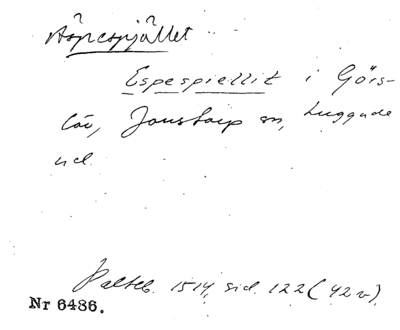 Äspespjället
Espespiellit i Görs-
löv, Jonstorp sn, Luggude
hd.
Palteb. 1514, sid. 122 (42 v).
Nr 6486.